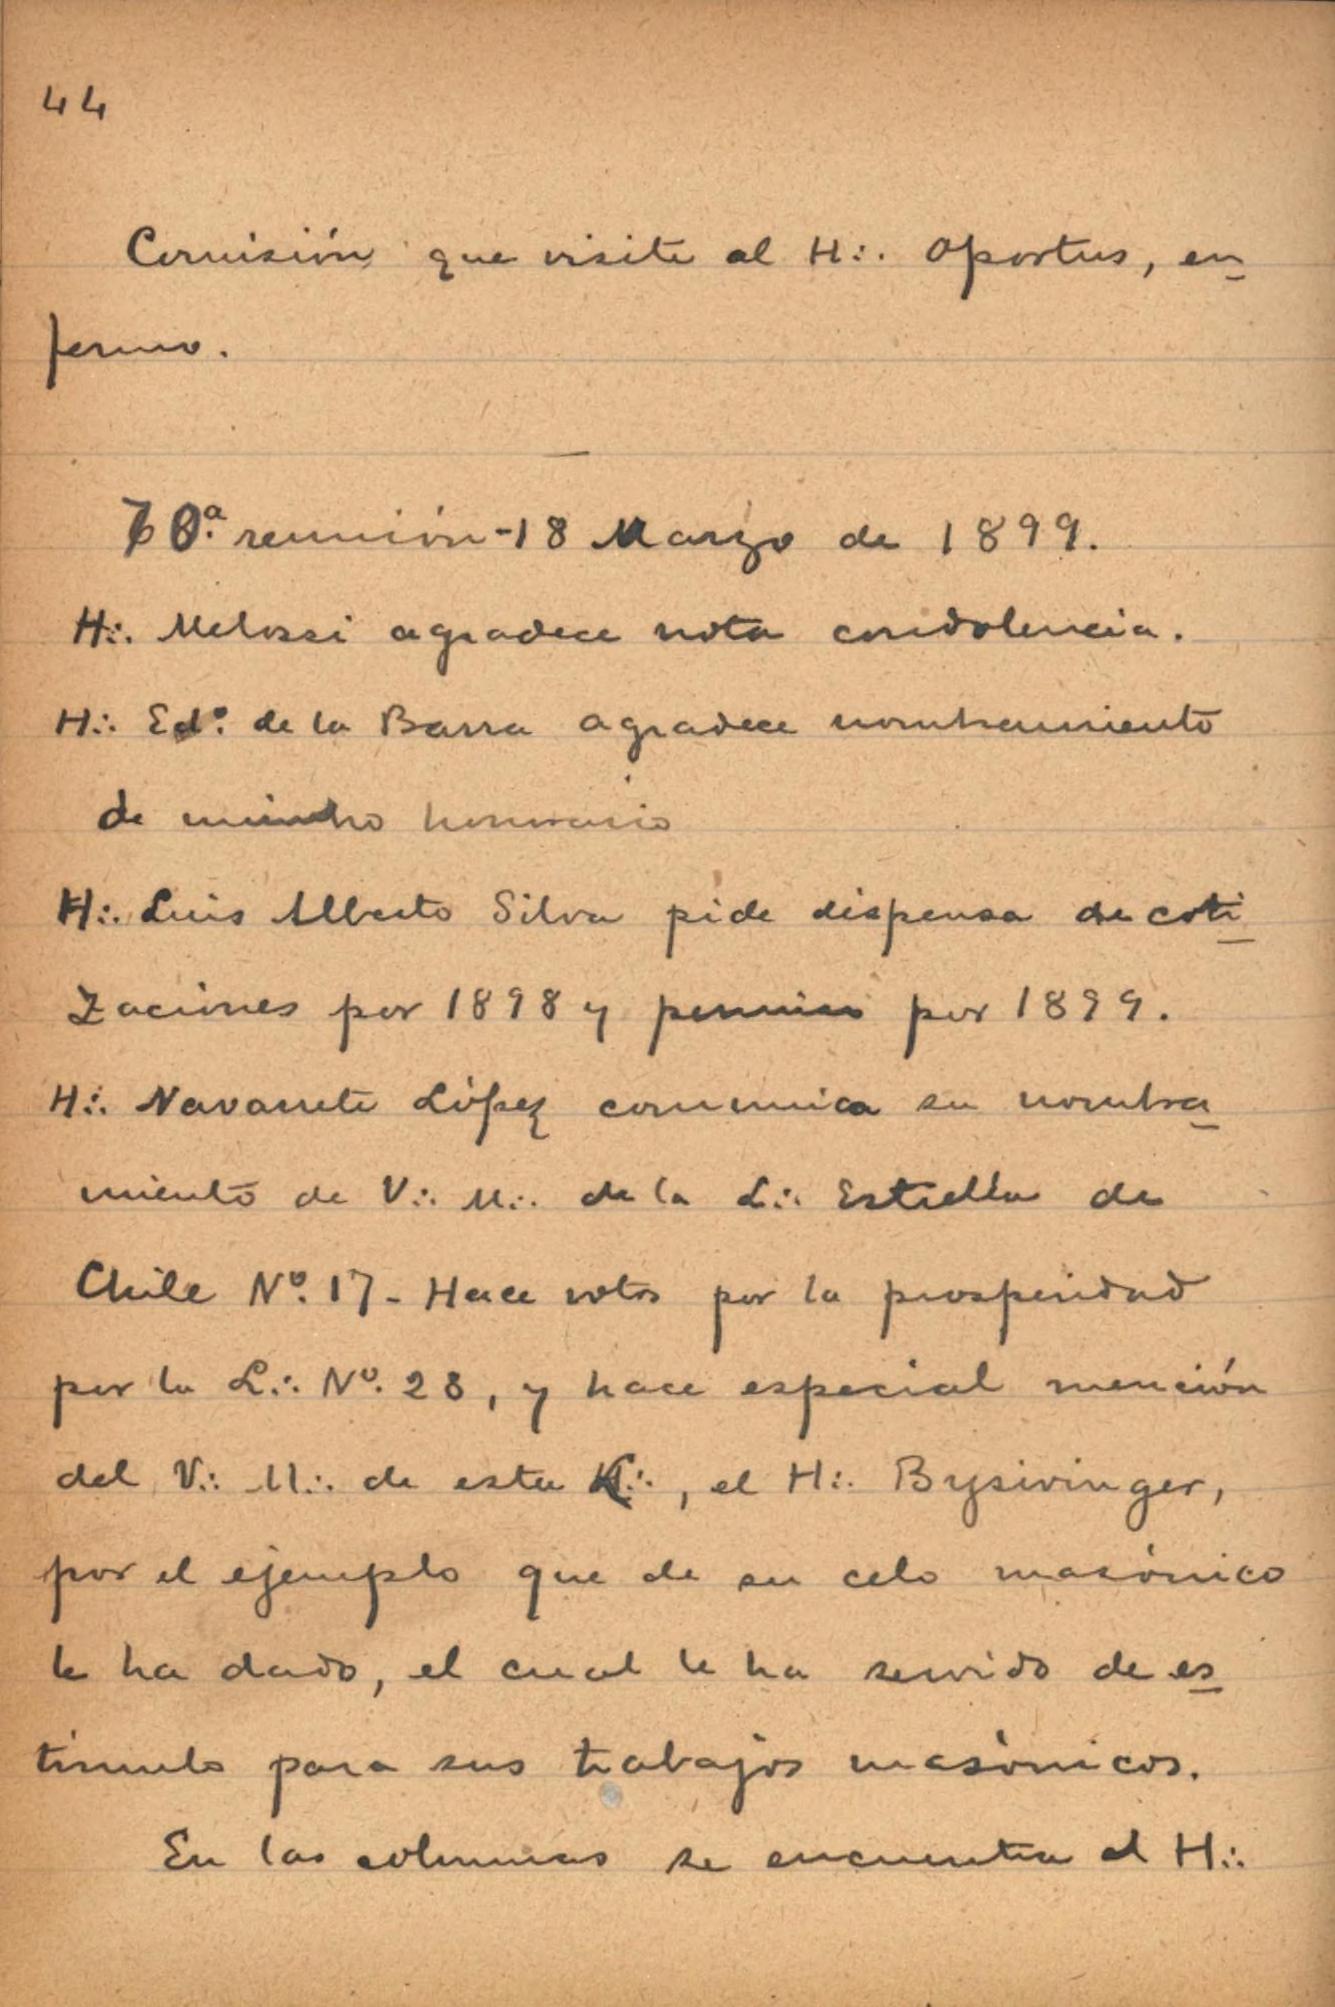 44
Comisión que visite al H∴ Oportus, en
fermo.
70ª reunión - 18 Marzo de 1899.
H∴ Melossi agradece nota condolencia.
H∴ Edº. de la Barra agradece nombramiento
de miembro honorario
H∴ Luis Alberto Silva pide dispensa de coti
zaciones por 1898 y permiso por 1899.
H∴ Navarrete López comunica su nombra
miento de V∴ M∴ de la L∴ Estrella de
Chile Nº. 17 - Hace votos por la prosperidad
por la L∴ Nº. 28, y hace especial mención
del V∴ M∴ de esta ∴, el H∴ Bysivinger,
por el ejemplo que de su celo masónico
le ha dado, el cual le ha servido de es
tímulo para sus trabajos masónicos.
En las columnas se encuentra el H∴